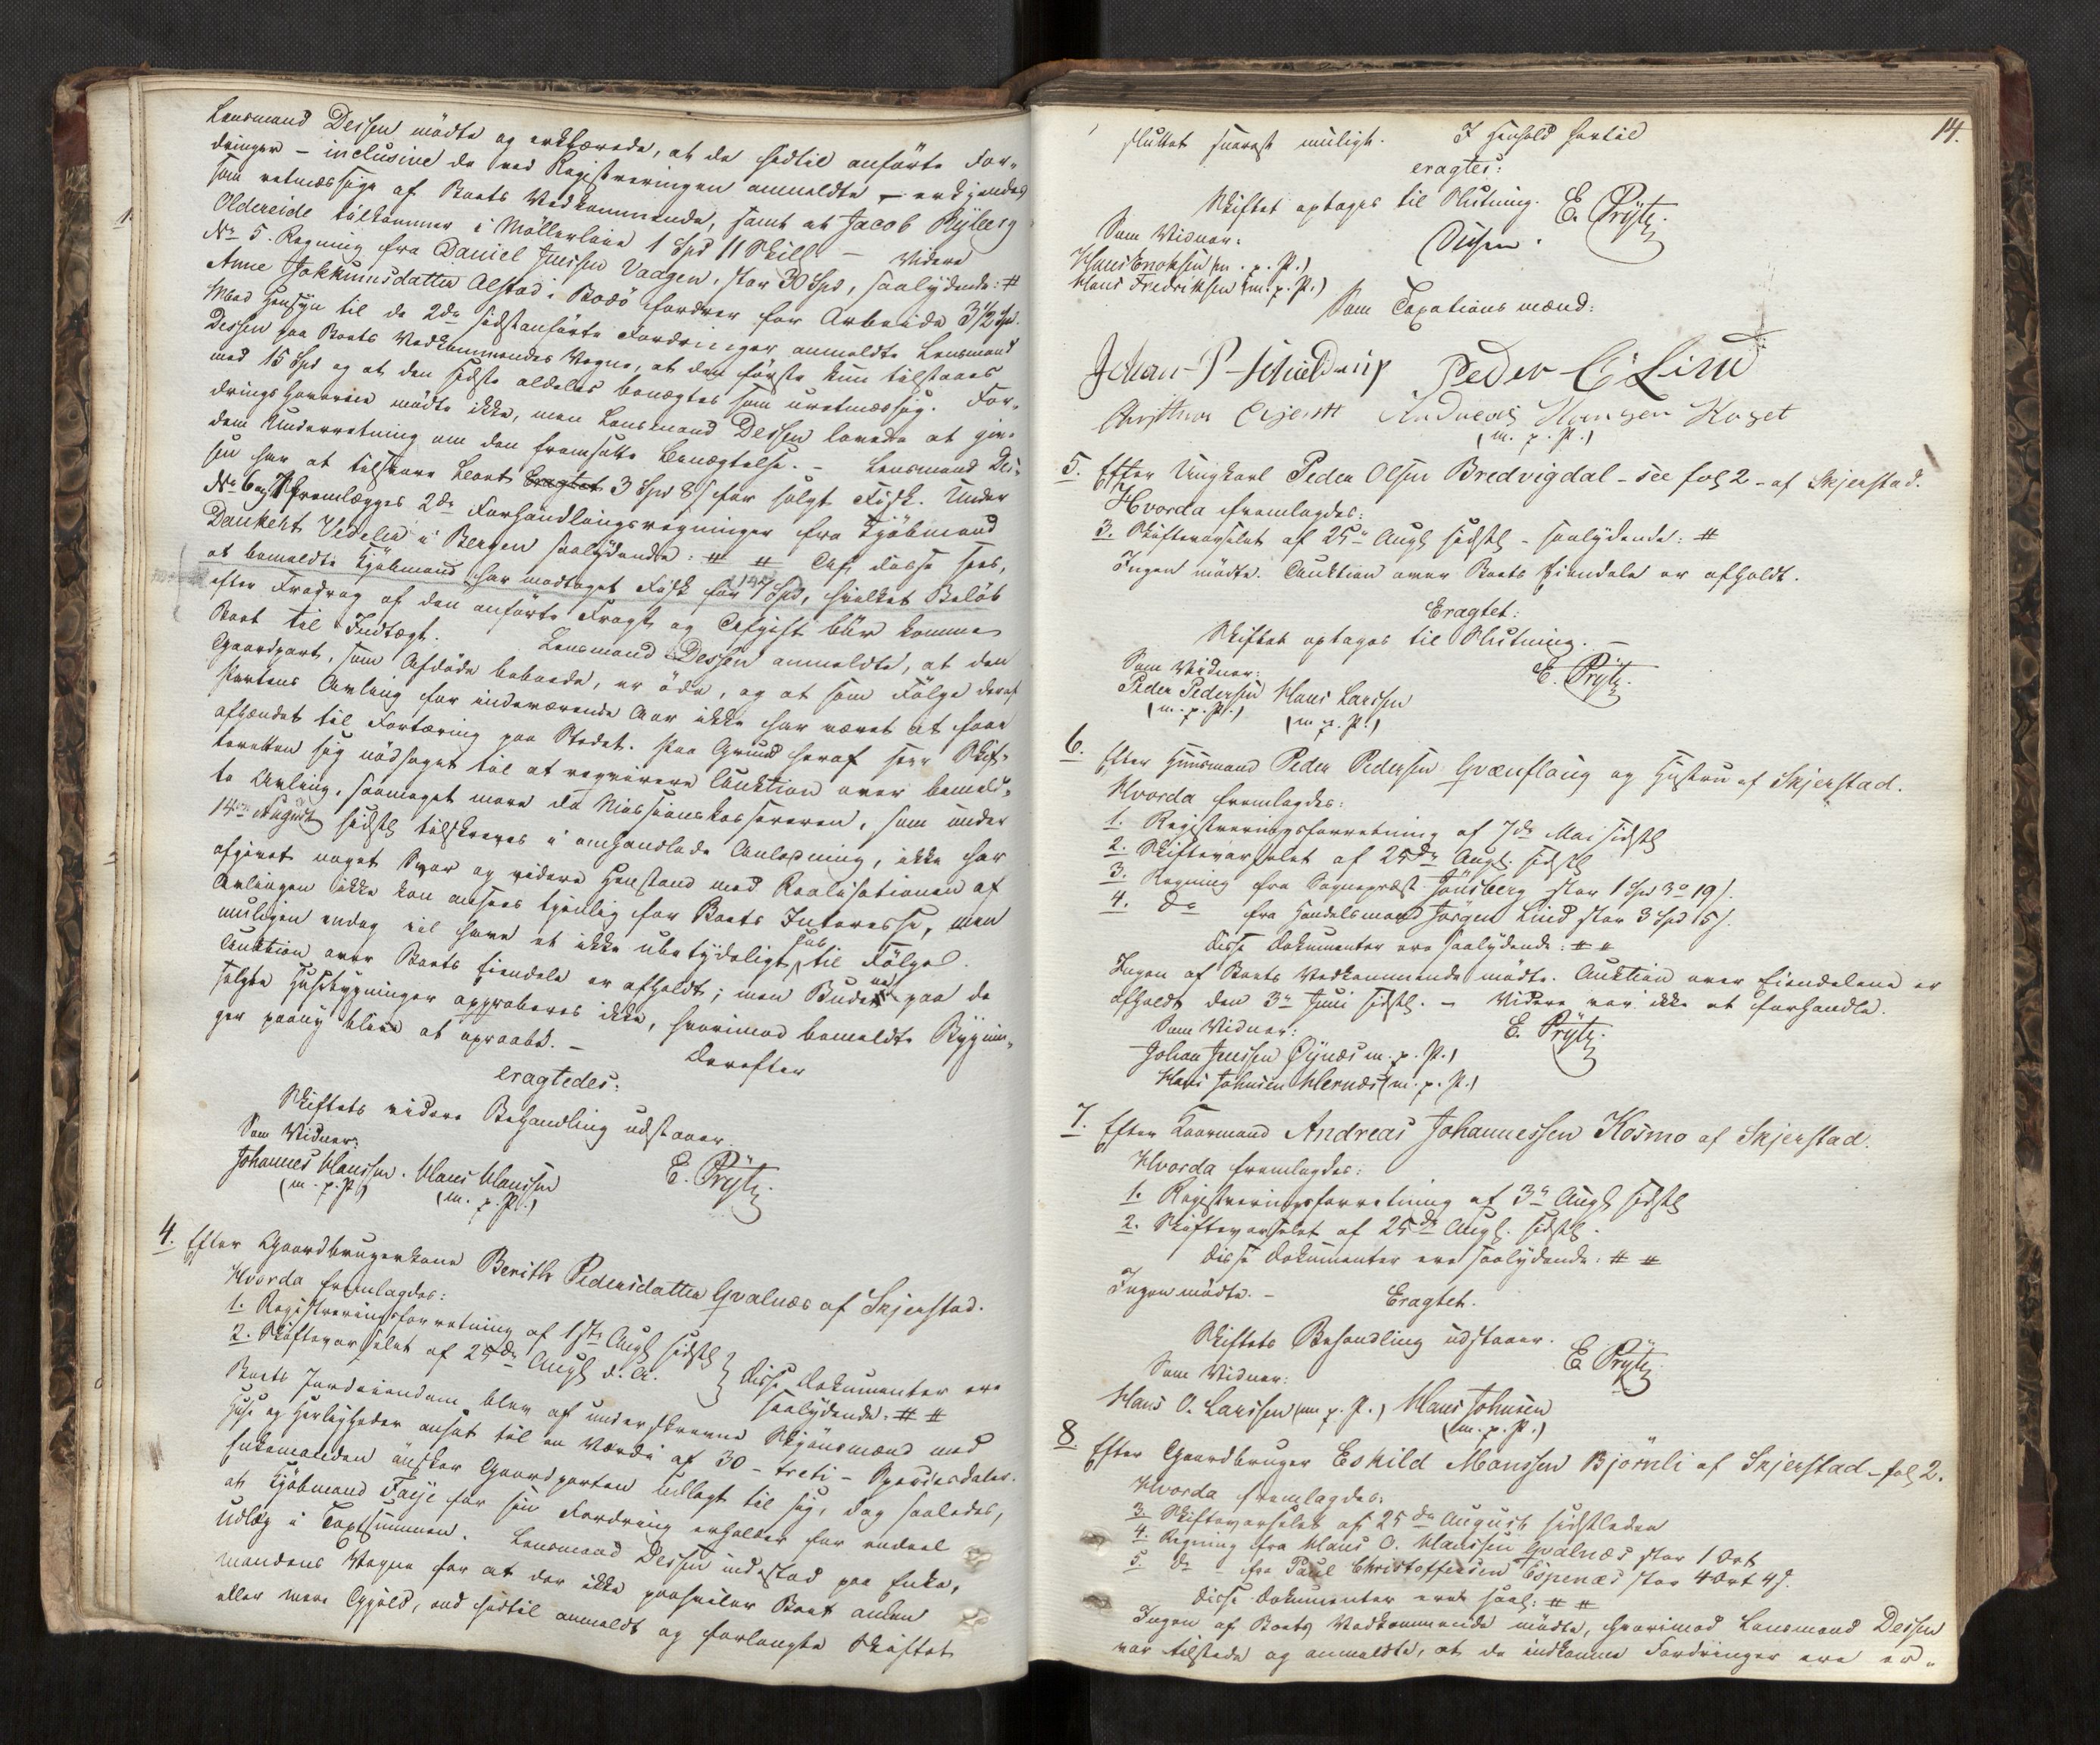 Lensmand Dessen mödte og erklærede, at de hidtil anförte For-
dringer – inclusive de ved Registreringen anmeldte – erkjendes
som retmæssige af Boets Vedkommende, samt at Jacob Rijberg
Oldereide tilkommer i Möllerleie 1 Spd 11 Skill – Videre
No 5. Regning fra Daniel Jenssen Vaagen, stor 30 Spd, saalydende: #
Anne Jokkumsdatter Alstad i Bodö fordrer for Arbeide 3 1/2 Spd.
Med Hensyn til de 2de sidstanförte Fordringer anmeldte Lensmand
Dessen paa Boets Vedkommendes Vegne, at den förste kun tilstaaes
med 15 Spd og at den sidste aldeles benægtes som uretmæssig. For-
dringshaverne mödte ikke, men Lensmand Dessen lovede at give
dem Underretning om den fremsatte Benægtelse. – Lensmand Des-
sen har at tilsvare Boet 3 Spd 8 s for solgt Fisk. Under
No 6 og 7 fremlægges 2de Forhandlingsregninger fra Kjöbmand
Dankert Vedeler i Bergen saalydende: # # Af disse sees,
at bemeldte Kjöbmand har modtaget Fisk for Spd, hvilket Belöb
efter Fradrag af den anförte Fragt og Afgift bör komme
Boet til Indtægt. Lensmand Dessen anmeldte, at den
Gaardpart, som Afdöde beboede, er öde, og at som Fölge deraf
Partens Avling for indeværende Aar ikke har været at faae
afhændet til Fortæring paa Stedet. Paa Grund heraf seer Skif-
teretten sig nödsaget til at reqvirere Auktion over bemeld-
te Avling, saameget mere da Missionskassereren, som under
14de August sidstl tilskreves i omhandlede Anledning, ikke har
afgivet noget Svar og videre Henstand med Realisationen af
Avlingen ikke kan ansees tjenlig for Boets Interesse, men
muligen endog vil have et ikke ubetydeligt Tab til Fölge.
Auktion over Boets Eiendele er afholdt; men Budene paa de
solgte Husbygninger approberes ikke, hvorimod bemeldte Bygnin-
ger paany blive at opraabe. – Derefter
eragtedes:
Skiftets videre Behandling udstaaer.
Som Vidner:
Johannes Hanssen. Hans Hanssen E. Prytz.
(m. p. P.) (m. p. P.)
4. Efter Gaardbrugerkone Berith Pedersdatter Gvalnæs af Skjerstad.
Hvorda fremlagdes:
1. Registreringsforretning af 1ste Augl sidstl
2. Skiftevarselet af 25de Augl d. A. } disse Dokumenter ere
saalydende: # #
Boets Jordeiendom blev af underskrevne Skjönsmænd med
Huse og Herligheder ansat til en Værdi af 30 – treti – Speciedaler.
Enkemanden önsker Gaardparten udlagt til sig, dog saaledes,
at Kjöbmand Faeje for sin Fordring erholder for endeel
Udlæg i Taxtsummen. Lensmand Dessen indestod paa Enke-
mandens Vegne for at der ikke paahviler Boet anden
eller mere Gjæld, end hidtil anmeldt og forlangte Skiftet
14.
sluttet snarest muligt. I Henhold hertil
eragtes:
Skiftet optages til Slutning. E. Prytz.
Som Vidner: Dessen.
Hans Enoksen (m. p. P.)
Hans Fredriksen (m. p. P.)
Som Taxationsmænd:
Johan P Schieldrup Peder C Lind
Andreas Hansen Koset
(m. p. P.)
5. Efter Ungkarl Peder Olsen Bredvigdal – see fol 2 – af Skjerstad.
Hvorda fremlagdes:
3. Skiftevarselet af 25de Augl sidstl – saalydende: #
Ingen mödte. Auktion over Boets Eiendele er afholdt.
Eragtet:
Skiftet optages til Slutning. –
Som Vidner: E. Prytz.
Peder Pedersen Hans Larssen
(m. p. P.) (m. p. P.)
6. Efter Huusmand Peder Pedersen Grænflaug og Hustru af Skjerstad.
Hvorda fremlagdes:
1. Registreringsforretning af 7de Mai sidstl
2. Skiftevarselet af 25de Augl. sidstl
3. Regning fra Sognepræst Jönsberg stor 1 Spd 3 o 19 s.
4. do fra Handelsmand Jörgen Lind stor 3 Spd 15 s.
disse Dokumenter ere saalydende: # #
Ingen af Boets Vedkommende mödte. Auktion over Eiendelene er
afholdt den 3de Juni sidstl. – Videre var ikke at forhandle.
Som Vidner: E. Prytz.
Johan Jenssen Öynæs (m. p. P.)
Hans Johnsen Hernæs (m. p. P.)
7. Efter Kaarmand Andreas Johannessen Kosmo af Skjerstad.
Hvorda fremlagdes:
1. Registreringsforretning af 3de Augl sidstl
2. Skiftevarselet af 25de Augl. sidstl.
disse Dokumenter ere saalydende: # #
Ingen mödte. – Eragtet.
Skiftets Behandling udstaaer.
Som Vidner: E. Prytz.
Hans O. Larssen (m. p. P.) Hans Johnsen
(m. p. P.)
8. Efter Gaardbruger Eskild Monssen Björnli af Skjerstad – fol 2.
Hvorda fremlagdes:
3. Skiftevarselet af 25de August sidstleden
4. Regning fra Hans O. Hanssen Gvalnæs stor 1 Ort
5. do – fra Paul Christoffersen Espenæs stor 4 Ort 4 s.
disse Dokumenter ere saal: # #
Ingen af Boets Vedkommende mödte, hvorimod Lensmand Dessen
var tilstede og anmeldte, at de indkomne Fordringer ere er-